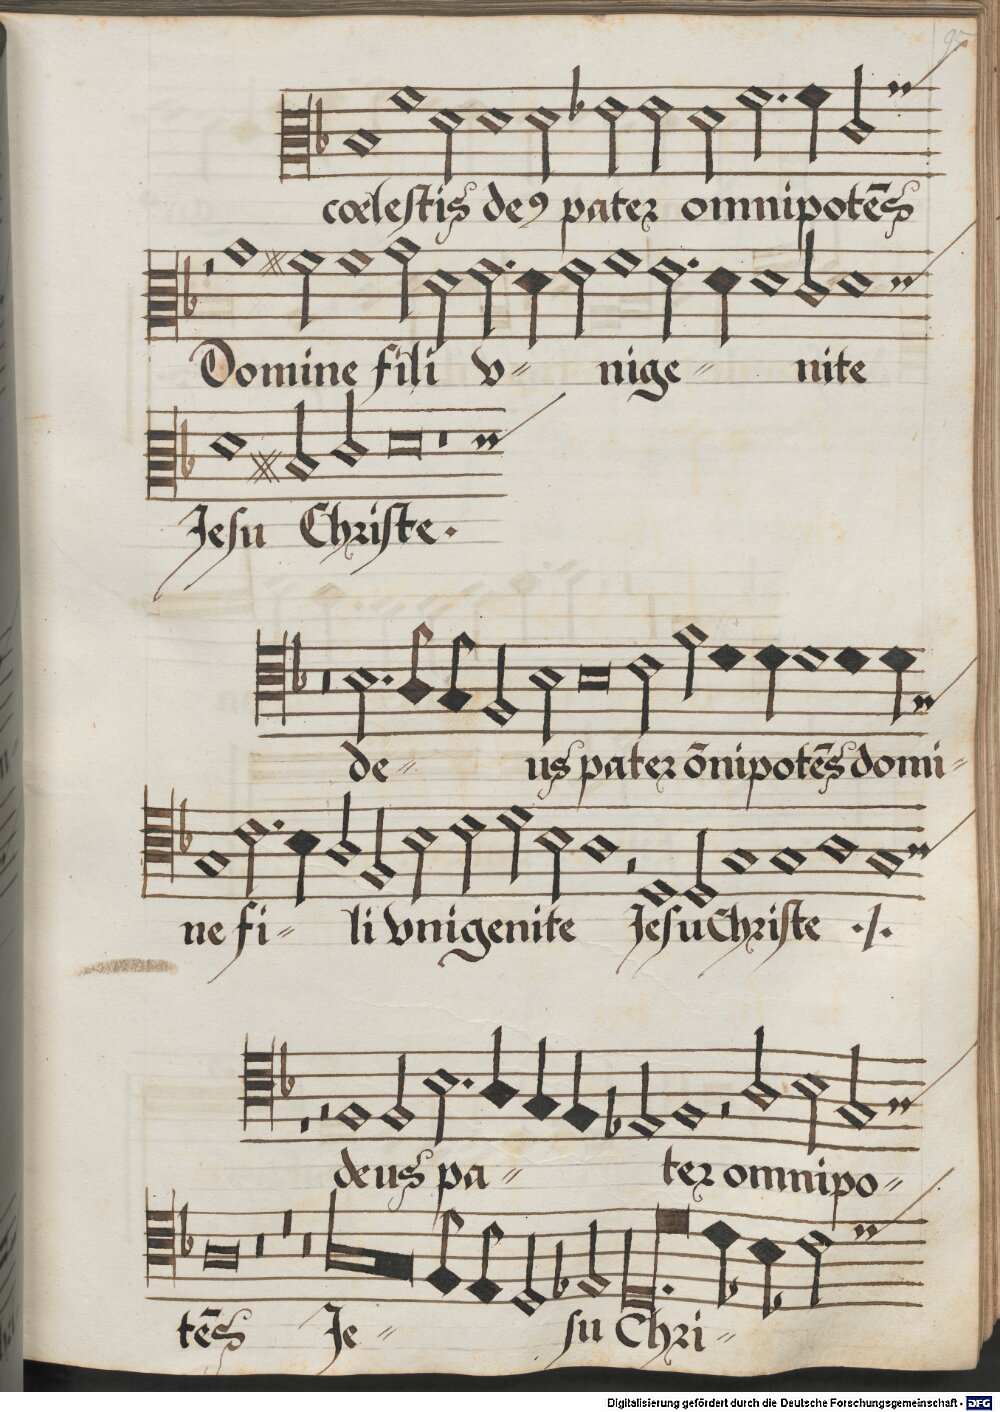 95
cœlestis deꝰ pater omnipotēs
Domine fili v- nige- nite
Jesu Christe.
de- us pater ōnipotēs domi-
ne fi- li vnigenite Jesu Christe ./.
deus pa- ter omnipo-
tēs Je- su Chri-
Digitalisierung gefördert durch die Deutsche Forschungsgemeinschaft - DFG